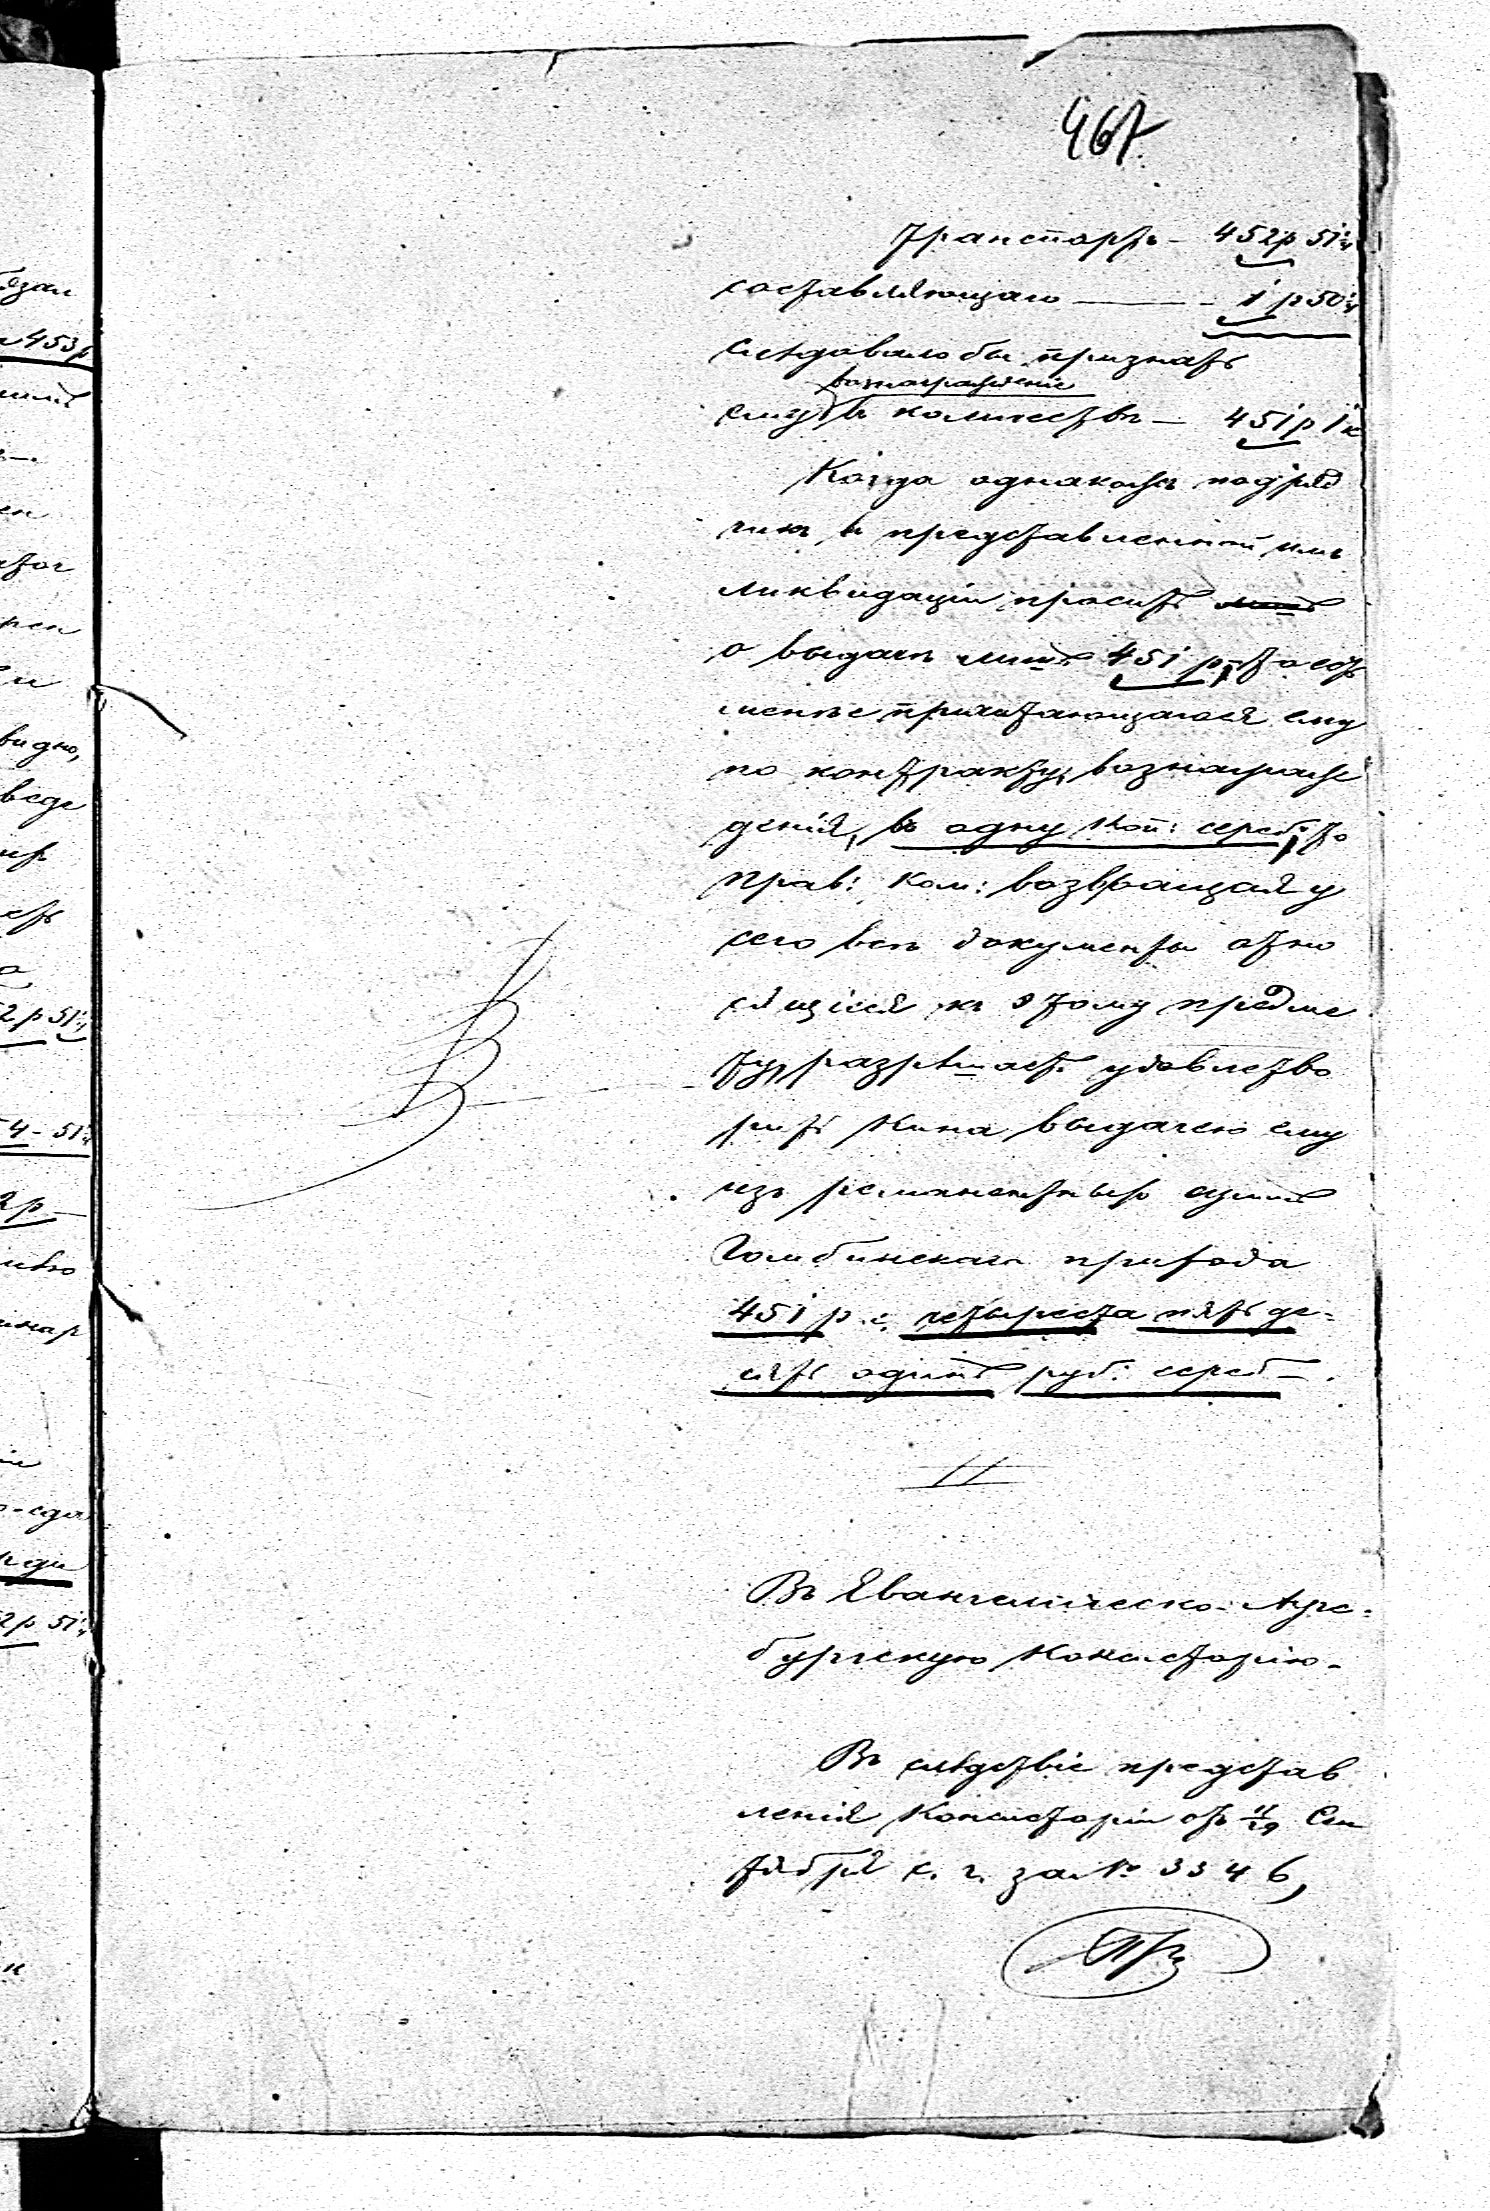 467.
Транспортъ – 452 р 51½
составляющаго — 1 р 50½
слѣдовало бы признать
вознагражденіе
ему въ количествѣ – 451 р 1 к
Когда однакожъ подряд
чикъ, въ представленной имъ
ликвидаціи, проситъ
о выдачѣ лишь 451 р, то есть
менѣе причитающагося ему
по контракту, вознаграж
денія, въ одну коп: сереб:, то
Прав: Ком: возвращая у
сего всѣ документы отно
сящіеся къ этому предме
ту, разрѣшаетъ удовлетво
рить Кина выдачею ему
изъ ремонентныхъ суммъ
Гомбинскаго прихода
451 р. с. четыреста пятьде-
сятъ одинъ руб: сереб –.
II
Въ Евангелическо-Аугс-
бургскую Консисторію.
Въ слѣдствіе представ
ленія Консисторіи отъ 11/29 Сен
тября с. г. за № 3346,
язан
453 р
видно,
веде
2 р 51½
4 – 51½
2 р –
2 р 51½